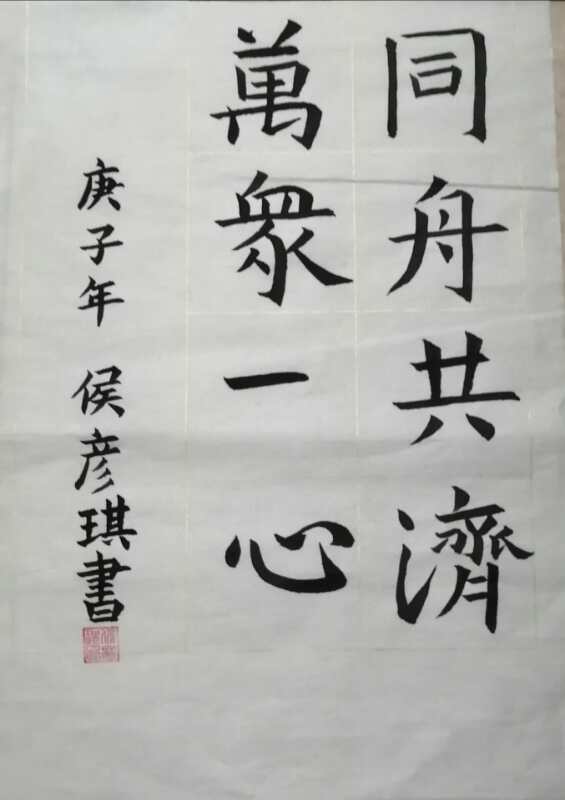 同舟共濟
萬眾一心
庚子年 侯彦琪書